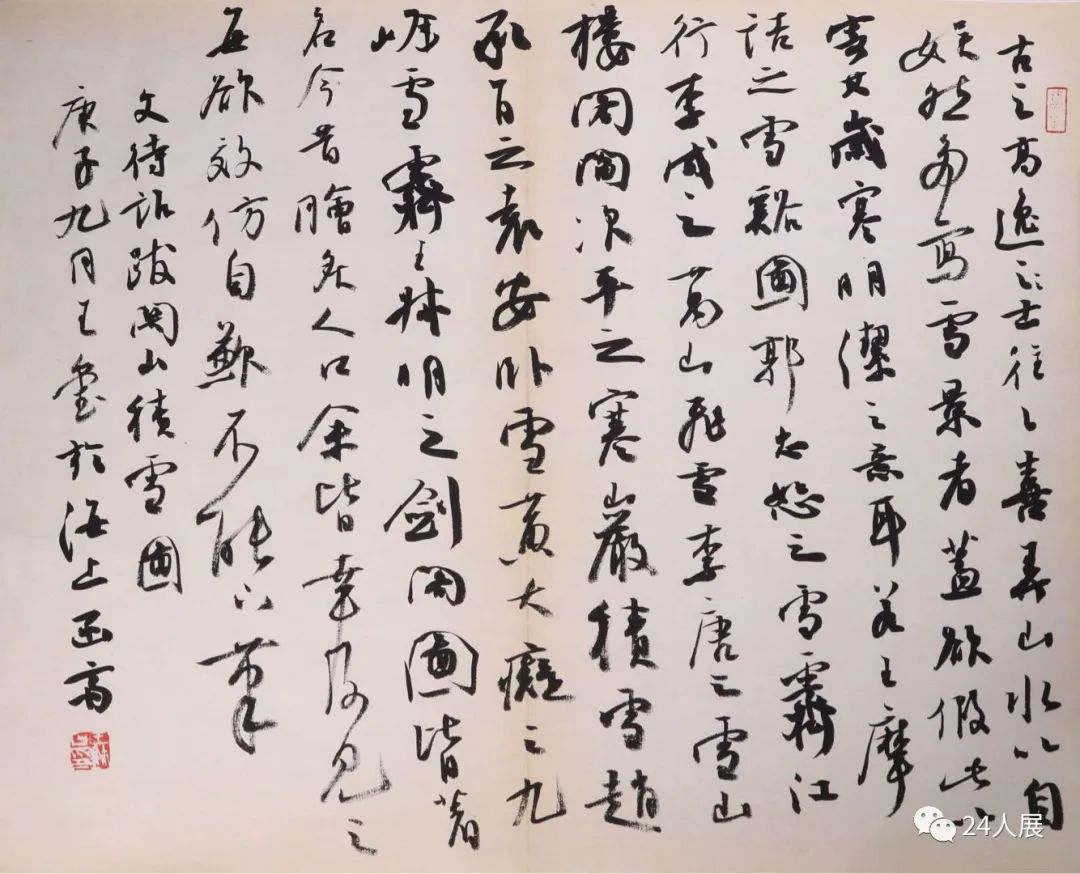 古之高逸之士往々喜弄山水以自
娱然多寫雪景者蓋欲假此以
寄其歲寒明潔之意耳若王摩
詰之雪谿圖郭忠恕之雪霽江
行李成之萬山飛雪李唐之雪山
樓閣閻次平之寒巖積雪趙
承旨之袁安卧雪黄大癡之九
峰雪霽王叔明之劍閣圖皆著
名今昔膾炙人口余皆幸及見之
每欲效仿自歉不能下筆
文待詔跋関山積雪圖
庚子九月王於海上画斋
24人展